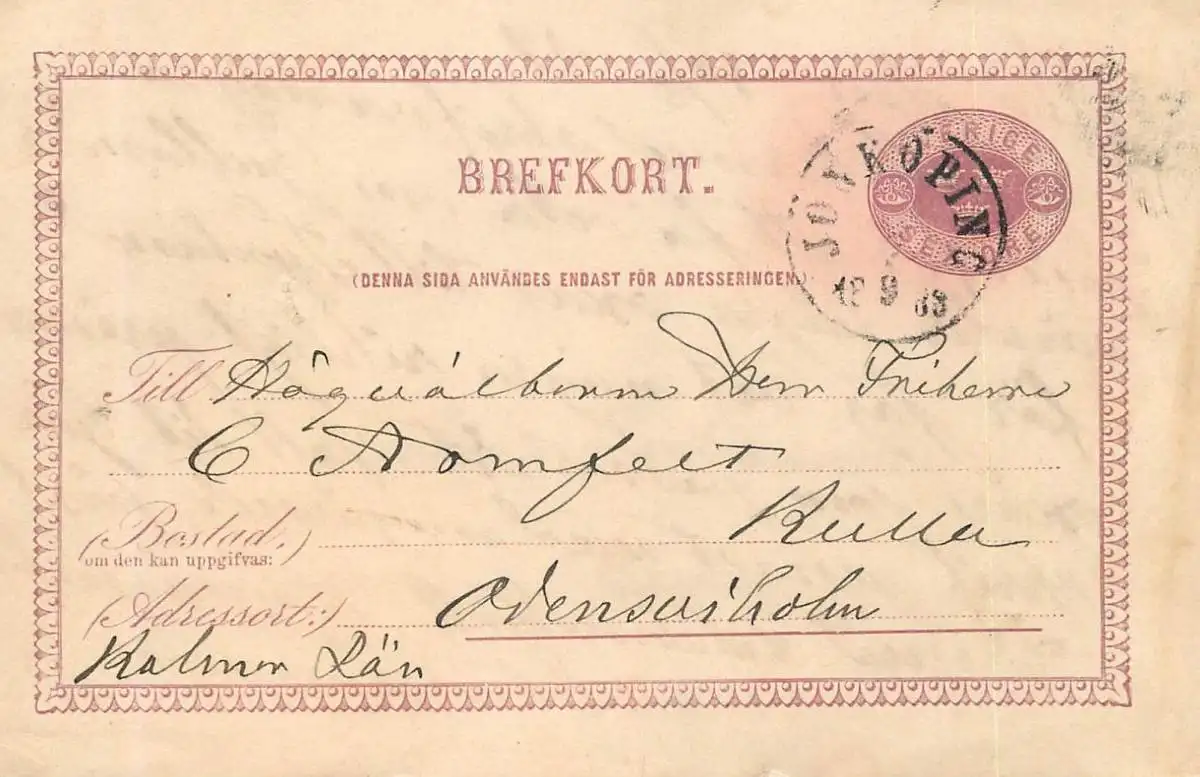 BREFKORT.
SVERIGE
SEX ÖRE
JÖNKÖPING
18 9 88
(DENNA SIDA ANVÄNDES ENDAST FÖR ADRESSERINGEN.)
Till Högvälborne Herr Friherre
C
(Bostad,
om den kan uppgifvas:) Kulla
(Adressort:) Odensviholm
Kalmar Län